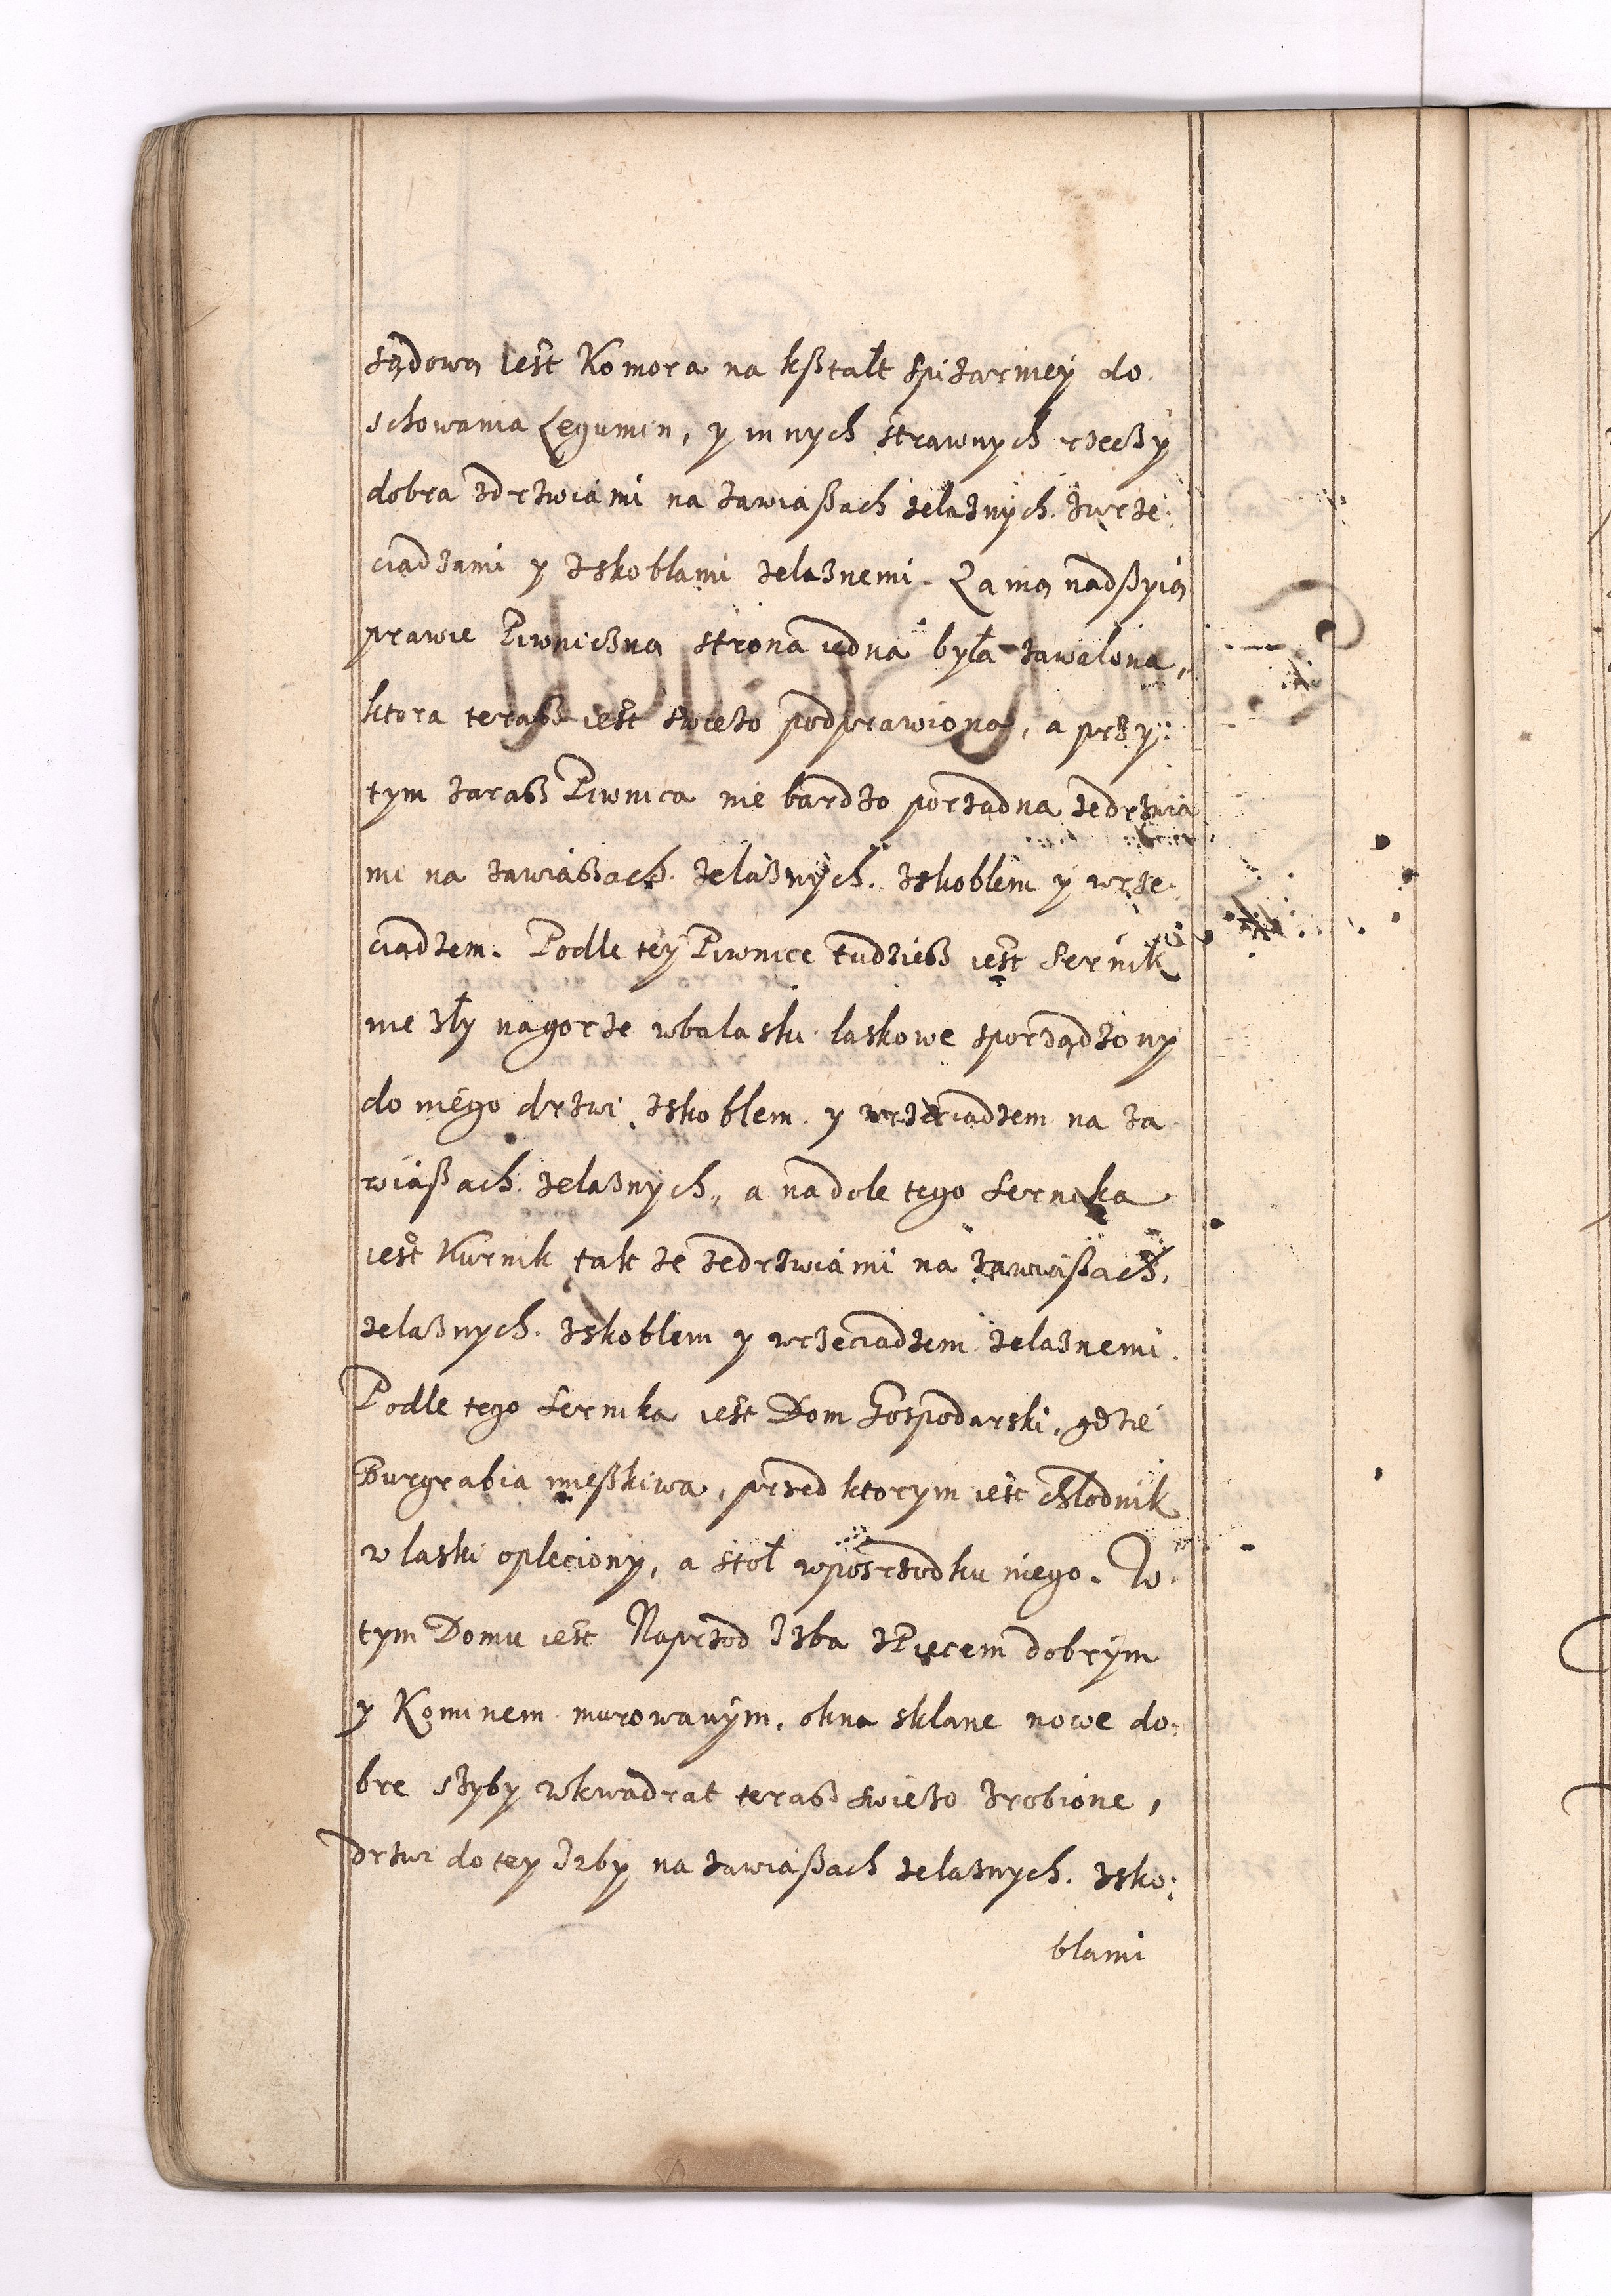 sądową iest Komora na kßtałt spiżarniey do
schowania Legumin, y innych strawnych rzeczÿ
dobra zdrzwiami na zawiaßach żelaznÿch. zwrze:
ciadzami y zskoblami żelaznemi. Za nią nadßyią
prawie Piwniczną strona iedna była zawalona,
ktora teraz iest swiezo podprawiona, a przy:
tym zaraz Piwnica nie bardzo porządna zedrzwia
mi na zawiasach. żelaznÿch. zskoblem y wrze:
ciądzem. Podle teÿ Piwnice tudziesz iest Sernik
nie zły nagorze wbalasku laskowe sporządzony
do niego drzwi zskoblem. y wrzeciadzem na za
wiaßach. żelaznych, a nadole tego Sernika
iest Kurnik tak ze zedrzwiami na zawiaßach.
żelaznych. zskoblem y wrzeciadzem żelaznemi.
Podle tego Sernika iest Dom Gospodarski, gdzie
Burgrabia mießkiwa, przed ktorym iest chłodnik
w laski opleciony, a stoł wpośrzodku niego. W
tym Domu iest Naprzod Izba zPiecem dobrÿm
y Kominem murowanÿm. okna sklane nowe do:
bre szyby wkwadrat teraz swiezo zrobione,
drzwi do tey Izby na zawiaßach żelaznych. zsko:
blami